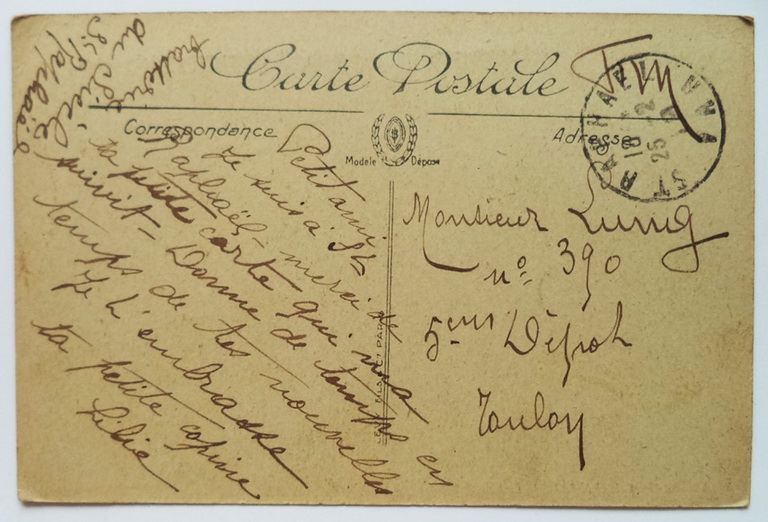 Carte Postale
Correspondance
Modèle Déposé
Adresse
FM
ST RAPHAEL
18
25
Petit ami
Je suis à St
Raphaël, merci de
ta petite carte qui m'a
suivit - Donne de temps en
temps de tes nouvelles
Je t'embrasse
ta petite copine
Lilie
du Siècle
St Raphaël
Monsieur Lung
n° 390
5ems Dépot
Toulon